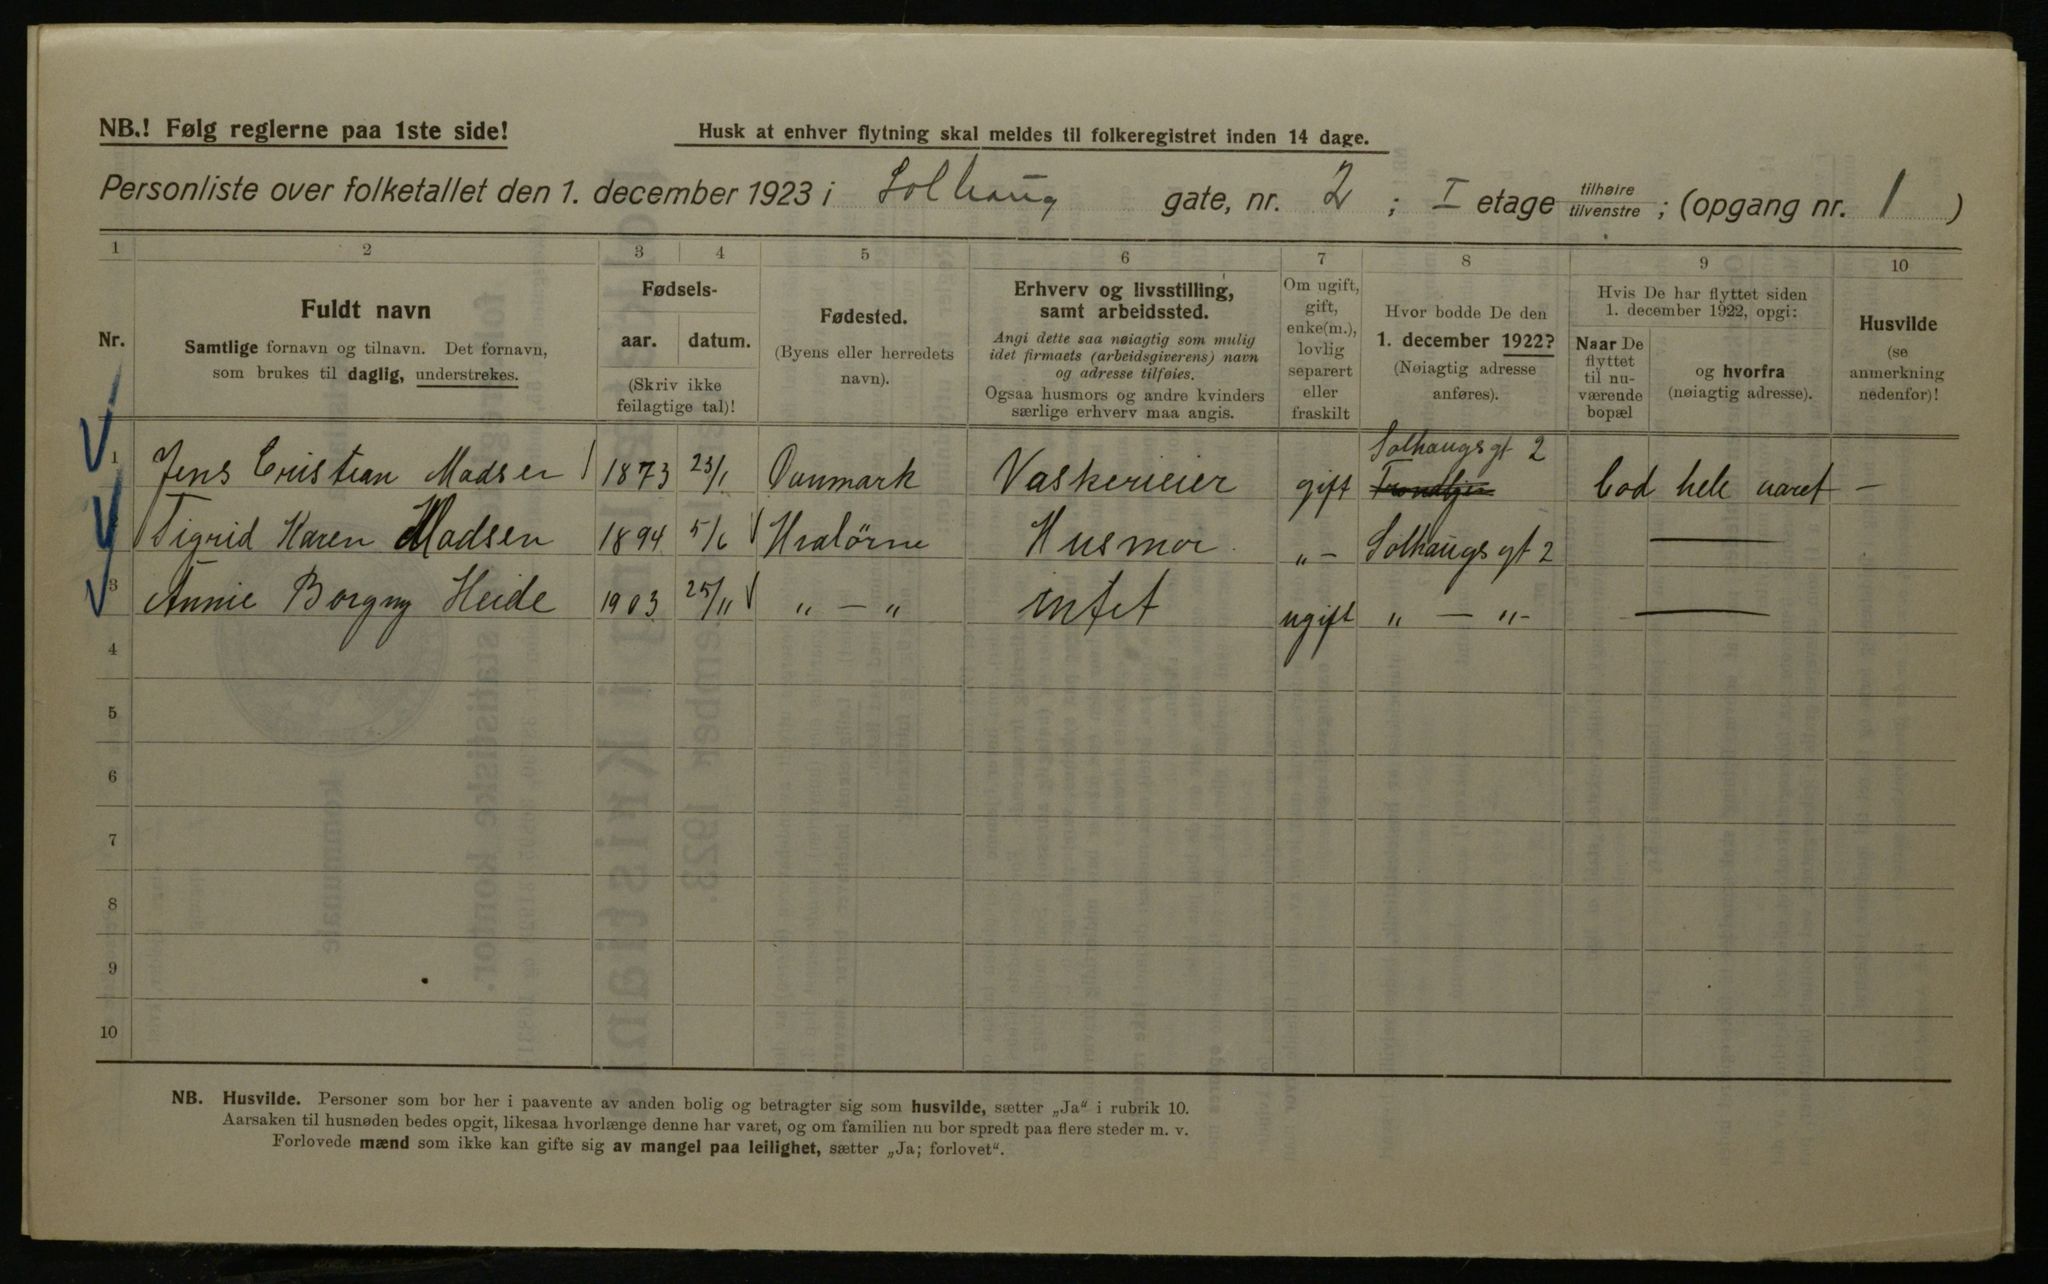 NB.! Følg reglerne paa 1ste side!
Husk at enhver flytning skal meldes til folkeregistret inden 14 dage.
Personliste over folketallet den 1. december 1923 i Solhaug gate, nr. 2 ; I etage tilhøire tilvenstre ; (opgang nr. 1 )
1 2 3 4 5 6 7 8 9 10
Nr.
Fuldt navn
Samtlige fornavn og tilnavn. Det fornavn,
som brukes til daglig, understrekes.
Fødsels-
aar. datum.
(Skriv ikke
feilagtige tal)!
Fødested.
(Byens eller herredets
navn).
Erhverv og livsstilling,
samt arbeidssted.
Angi dette saa nøiagtig som mulig
idet firmaets (arbeidsgiverens) navn
og adresse tilføies.
Ogsaa husmors og andre kvinders
særlige erhverv maa angis.
Om ugift,
gift,
enke(m.),
lovlig
separert
eller
fraskilt
Hvor bodde De den
1. december 1922?
(Nøiagtig adresse
anføres).
Hvis De har flyttet siden
1. december 1922, opgi:
Naar De
flyttet
til nu-
værende
bopæl
og hvorfra
(nøiagtig adresse).
Husvilde
(se
anmerkning
nedenfor)!
Solhaugsgt 2
1 Jens Cristian Madsen 1873 23/1 Danmark Vaskerieier gift Trondhjem bod hele aaret —
Sigrid Karen Madsen 1894 5/6 Hvalørne Husmor „ – Solhaugsgt 2 —
3 Annie Borgny Heide 1903 25/11 „ — „ intet ugift „ — „ – —
4
5
6
7
8
9
10
NB. Husvilde. Personer som bor her i paavente av anden bolig og betragter sig som husvilde, sætter „Ja“ i rubrik 10.
Aarsaken til husnøden bedes opgit, likesaa hvorlænge denne har varet, og om familien nu bor spredt paa flere steder m. v.
Forlovede mænd som ikke kan gifte sig av mangel paa leilighet, sætter „Ja; forlovet“.